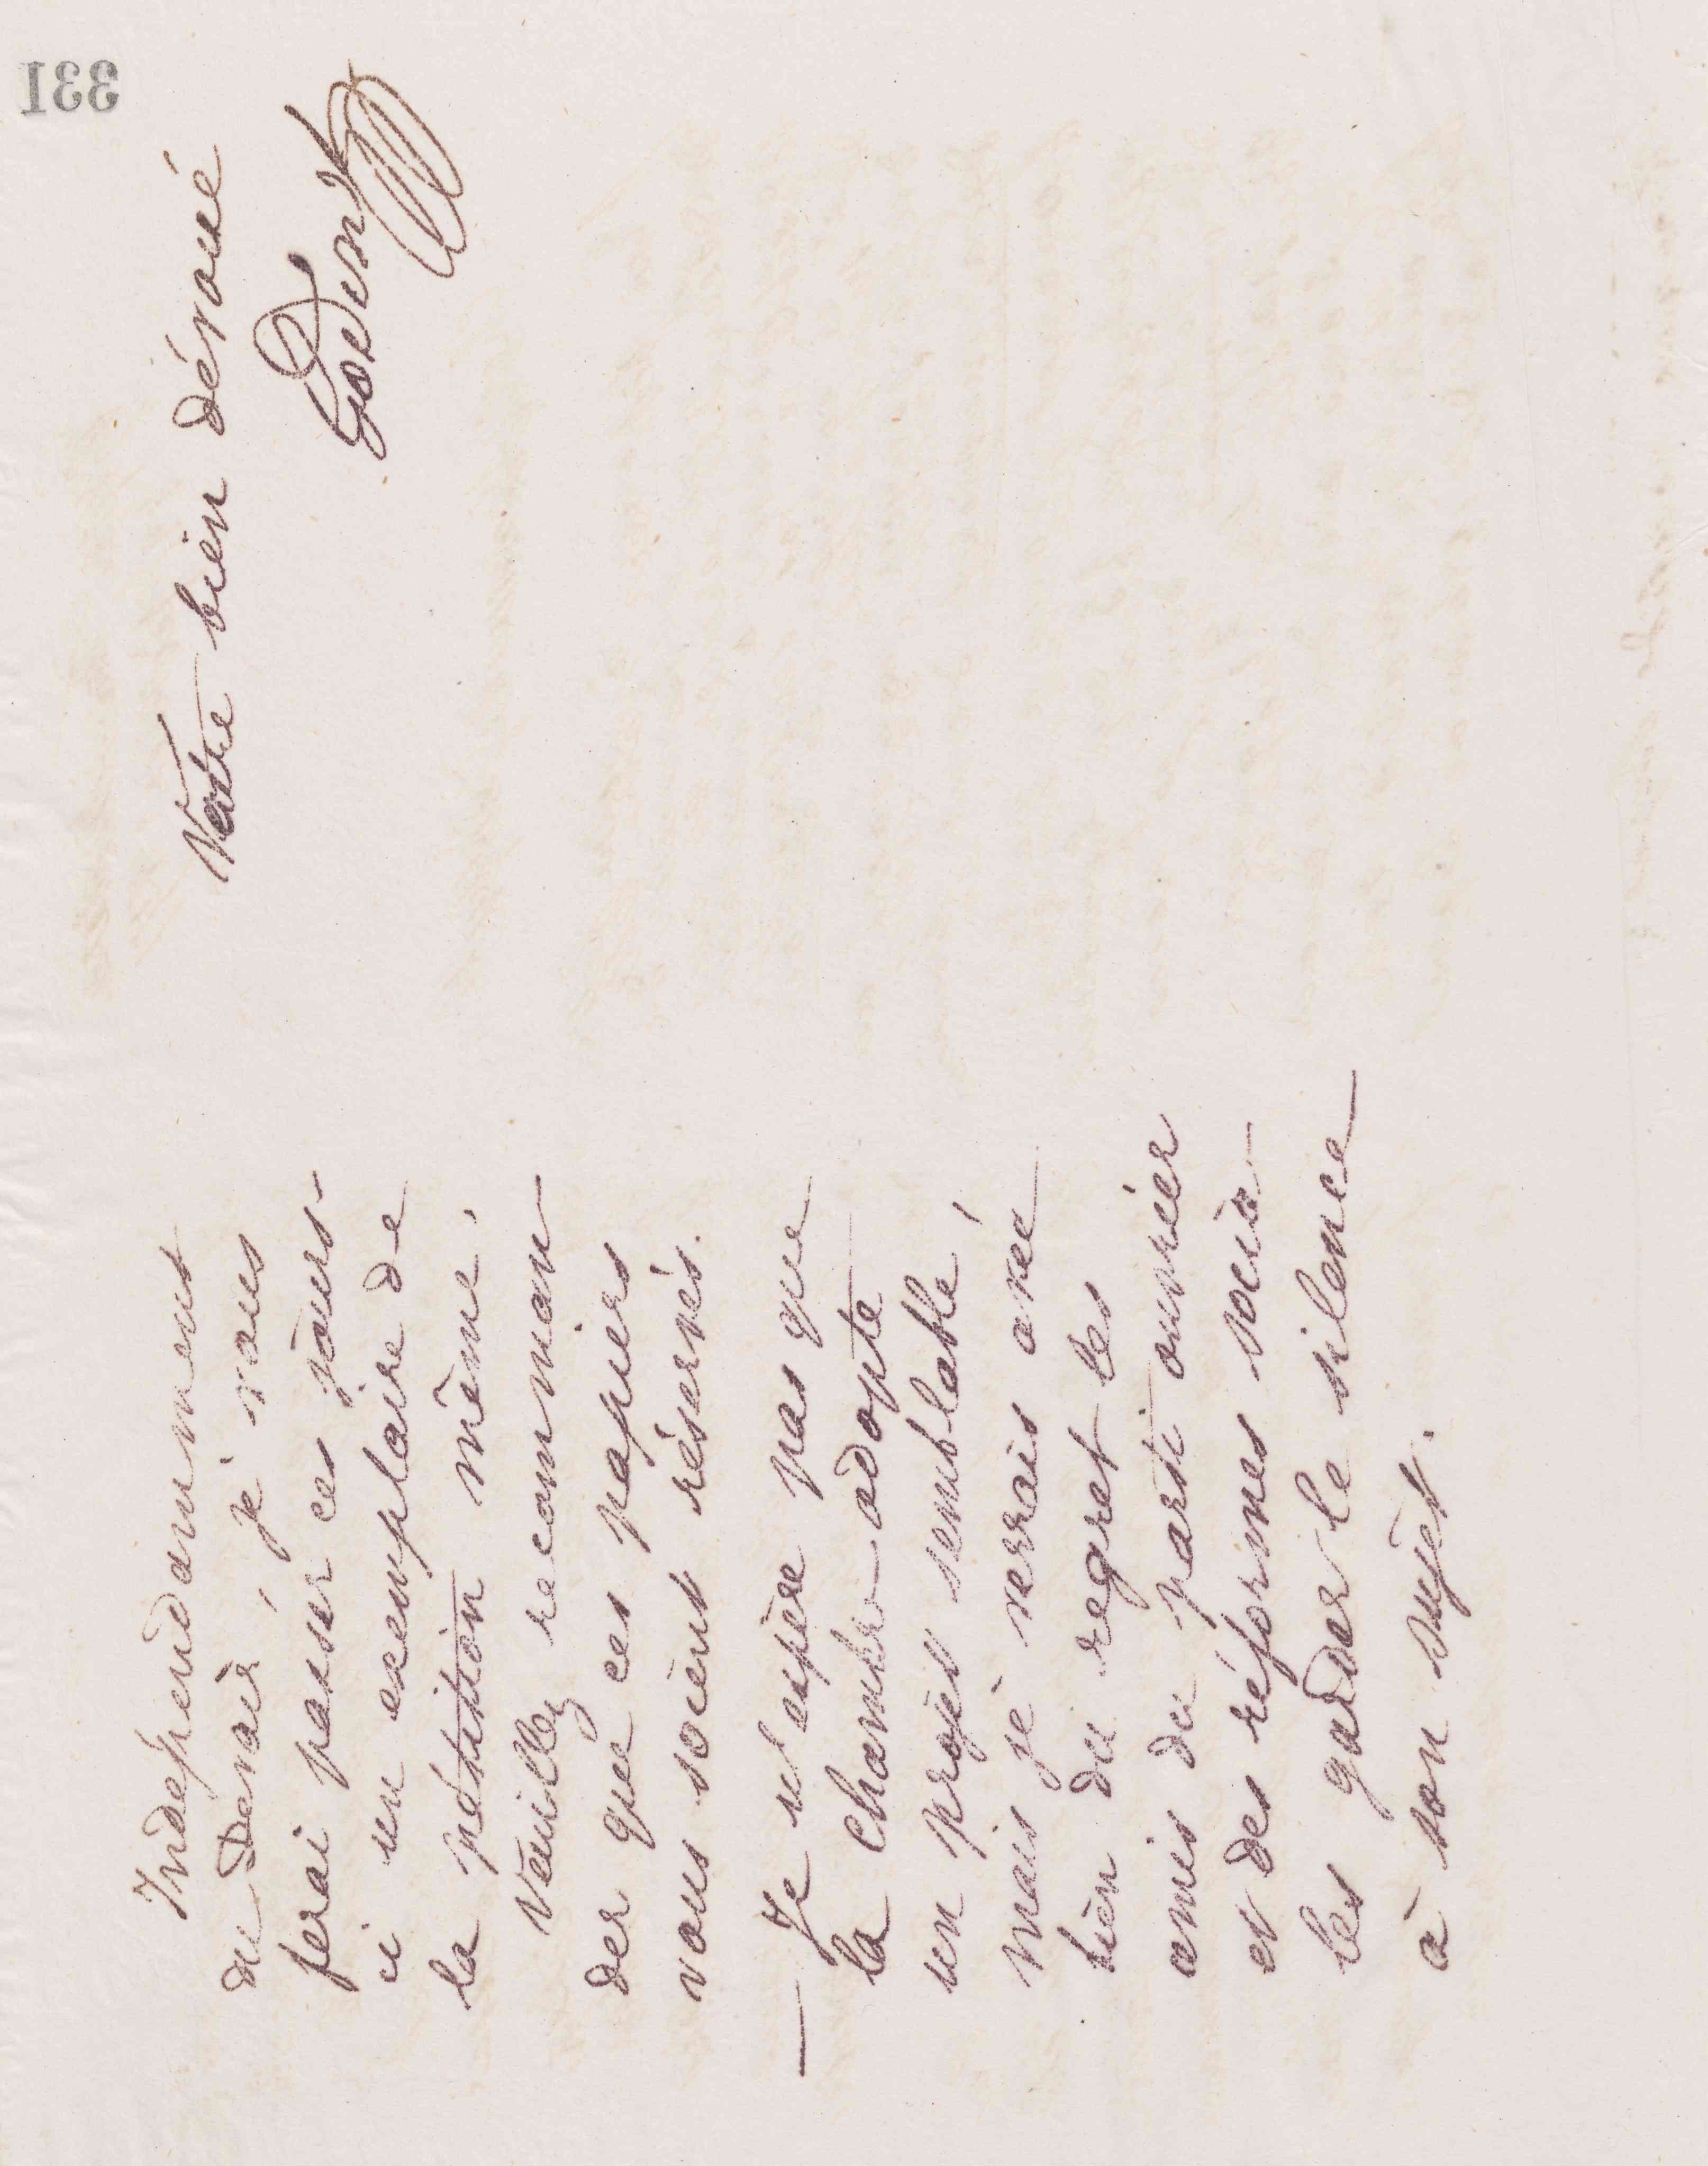 331
Indépendamment
du Devoir, je vous
ferai passer ces jours-
ci un exemplaire de
la pétition même.
Veuillez recomman-
der que ces papiers
vous soient réservés.
— Je n'espère pas que
la Chambre adopte
un projet semblable,
mais je verrais avec
bien du regret les
amis du parti ouvrier
et des réformes socia-
les garder le silence
à son sujet.
Votre bien dévoué
Godin